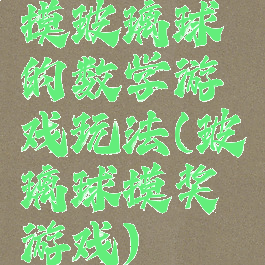 模玻璃球
的数学游
戏玩法(玻
璃球模奖
游戏)